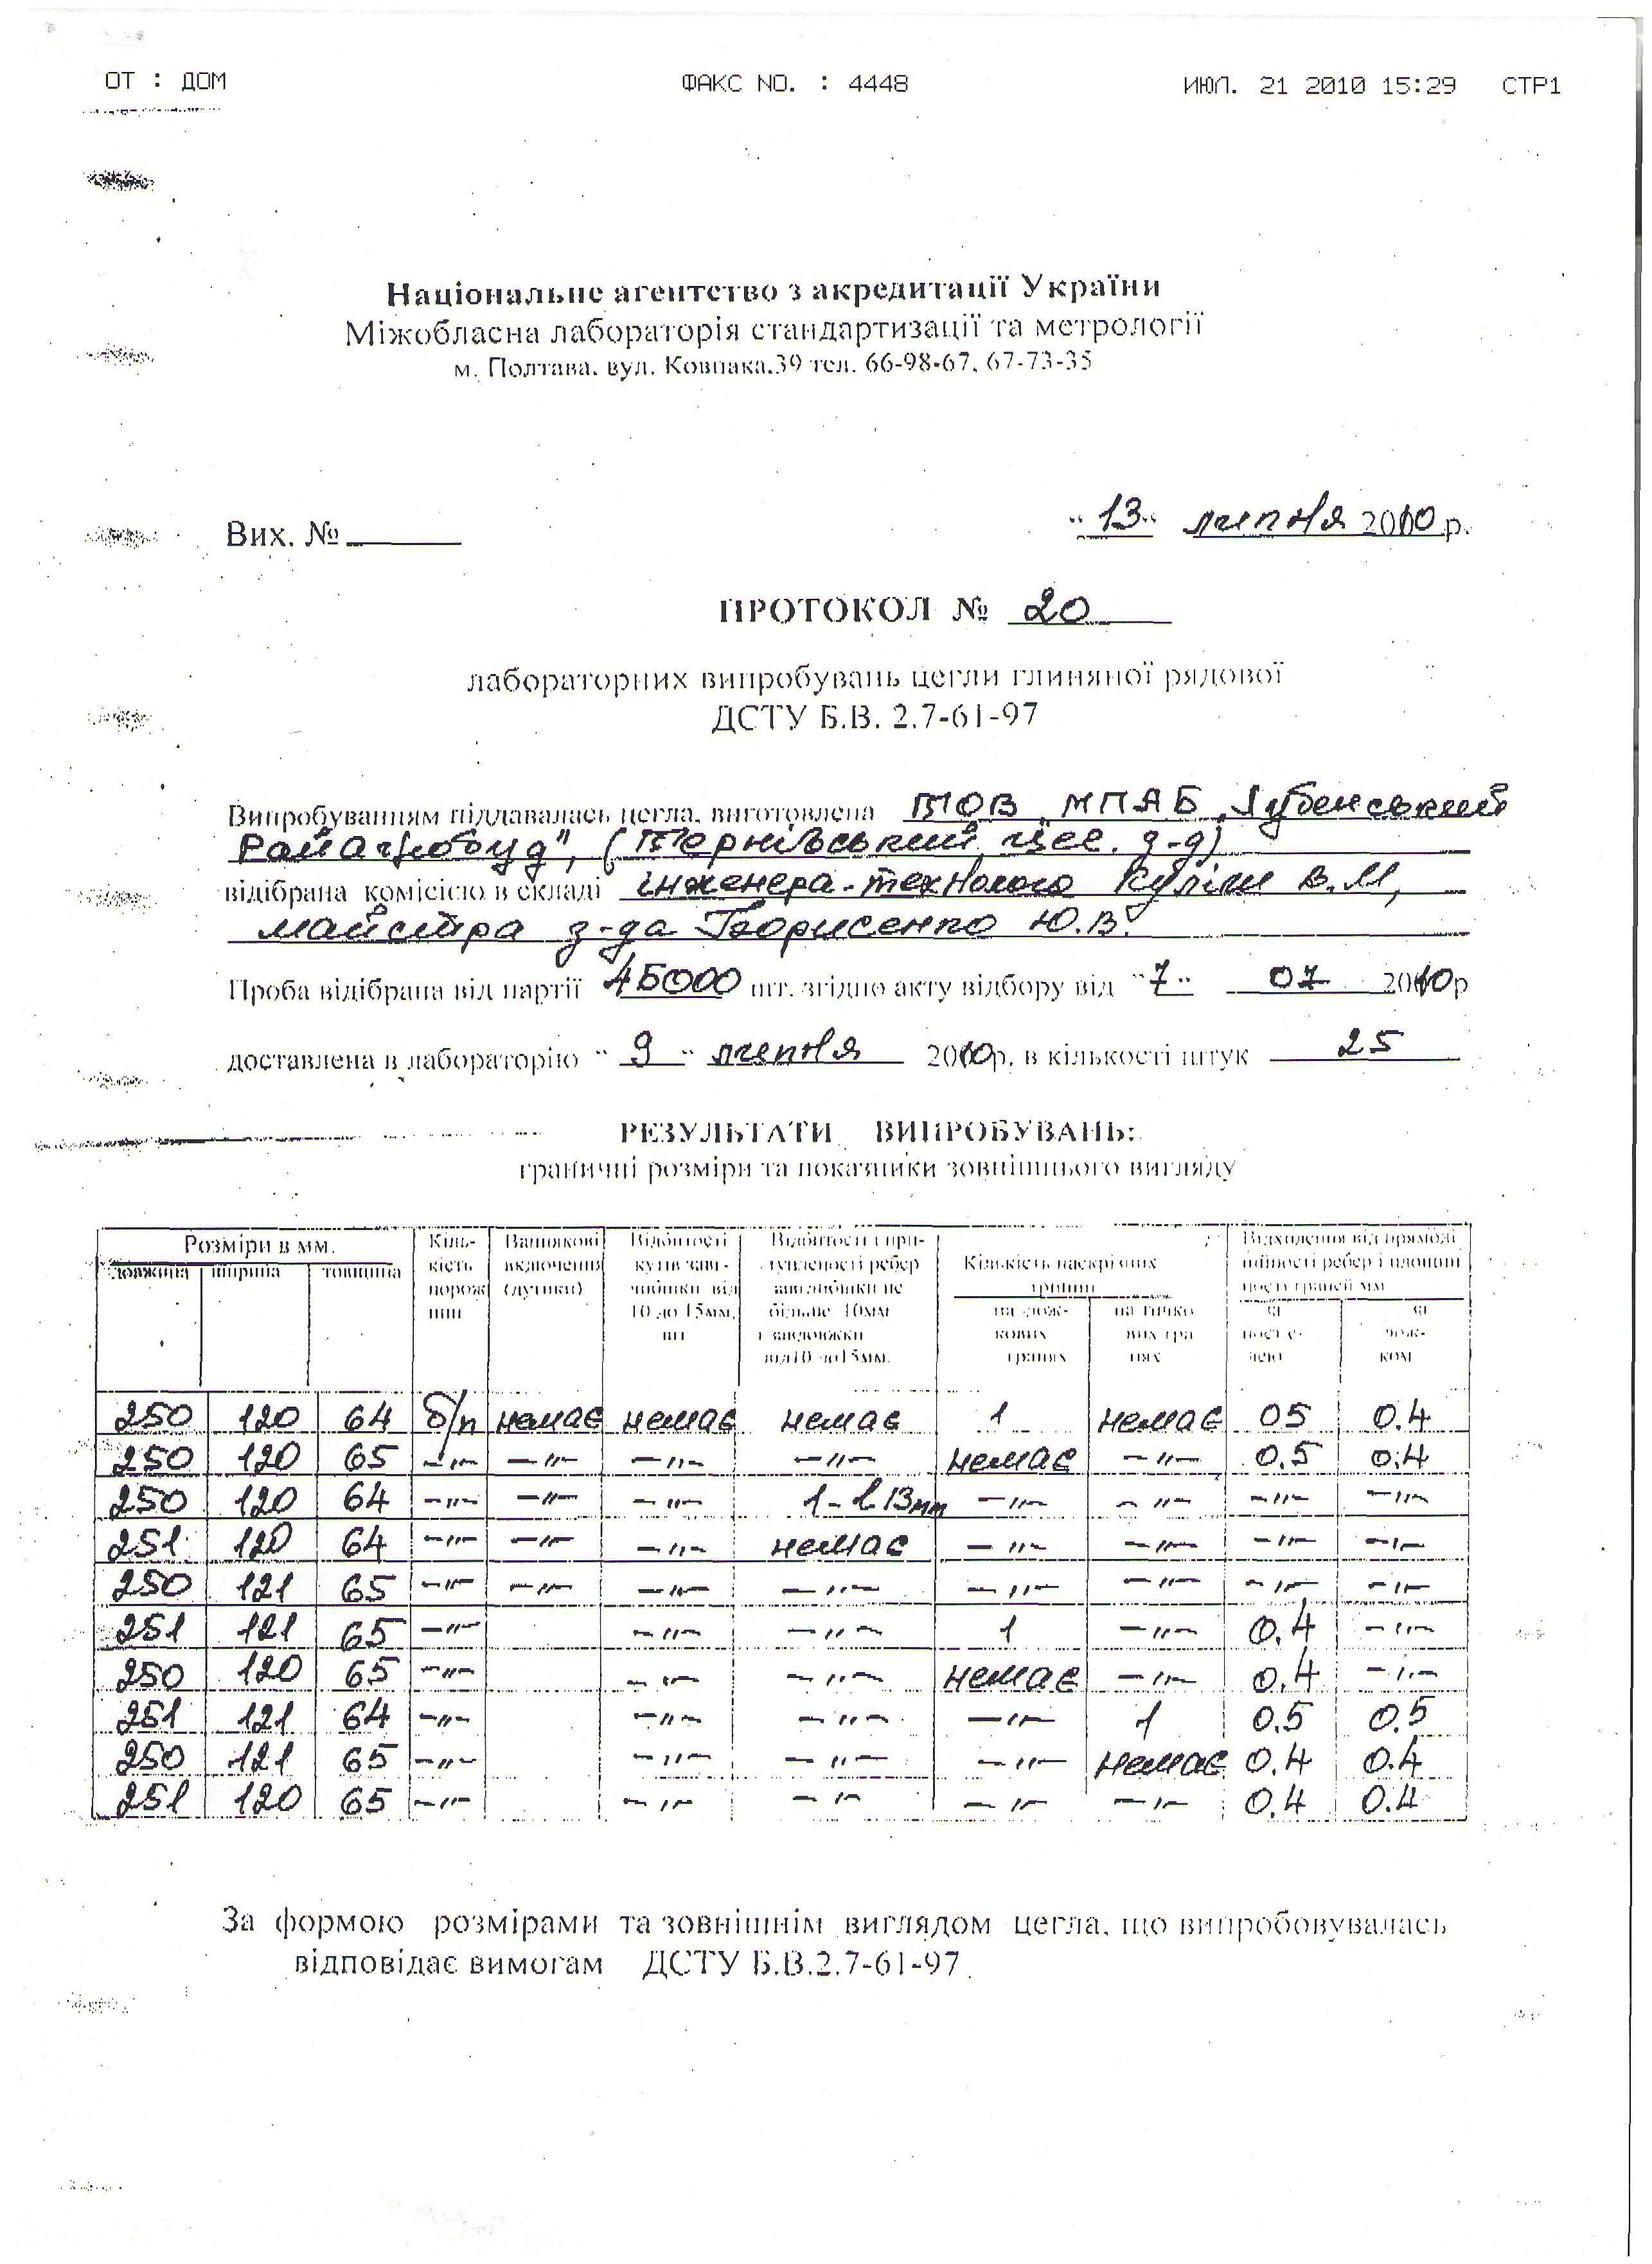 ОТ : ДОМ ФАКС NO. : 4448 ИЮЛ. 21 2010 15:29 СТР1
Національне агентство з акредитації України
Міжобласна лабораторія стандартизації та метрології
м. Полтава, вул. Ковпака,39 тел. 66-98-67, 67-73-35
Вих. № "13" липня 2010р.
ПРОТОКОЛ № 20
лабораторних випробувань цегли глиняної рядової
ДСТУ Б.В. 2.7-61-97
Випробуванням піддавалась цегла, виготовлена ТОВ МПАБ „Лубенський
Райагробуд", (Тернівський цег. з-д)
відібрана комісією в складі інженера-технолога Куліш В.М,
майстра з-да Борисенко Ю.В.
Проба відібрана від партії 45000 шт. згідно акту відбору від "7" 07 2010р
доставлена в лабораторію "9" липня 2010р. в кількості штук 25
РЕЗУЛЬТАТИ ВИПРОБУВАНЬ:
граничні розміри та показники зовнішнього вигляду
Розміри в мм. Кіль- Вапнякові Відбитості Відбитості і при- Кількість наскрізних Відходення від прямолі
довжина ширина товщина кість включення кутів зав- тупленості ребер тріщин нійності ребер і площин
порож (дутики) глибшки від завглибшки не ності граней мм
нин 10 до 15мм, більше 10мм на лож- на тичко за за
шт і завдовжки кових вих гра пост е- лож-
від10 до15мм. гранях нях лею ком
250 120 64 б/п немає немає немає 1 немає 05 0.4
250 120 65 -"- -"- -"- -"- немає -"- 0.5 0.4
250 120 64 -"- -"- -"- 1-l 13мм -"- -"- -"- -"-
251 120 64 -"- -"- -"- немає -"- -"- -"- -"-
250 121 65 -"- -"- -"- -"- -"- -"- -"- -"-
251 121 65 -"- -"- -"- 1 -"- 0.4 -"-
250 120 65 -"- -"- -"- немає -"- 0.4 -"-
251 121 64 -"- -"- -"- -"- 1 0.5 0.5
250 121 65 -"- -"- -"- -"- немає 0.4 0.4
251 120 65 -"- -"- -"- -"- -"- 0.4 0.4
За формою розмірами та зовнішнім виглядом цегла, що випробовувалась
відповідає вимогам ДСТУ Б.В.2.7-61-97